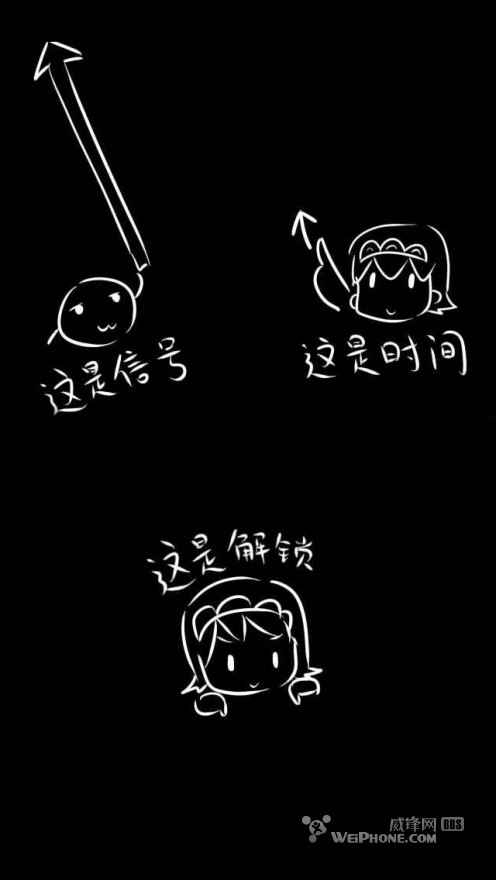 这是信号
这是时间
这是解锁
威锋网 BBS
WEIPHONE.COM